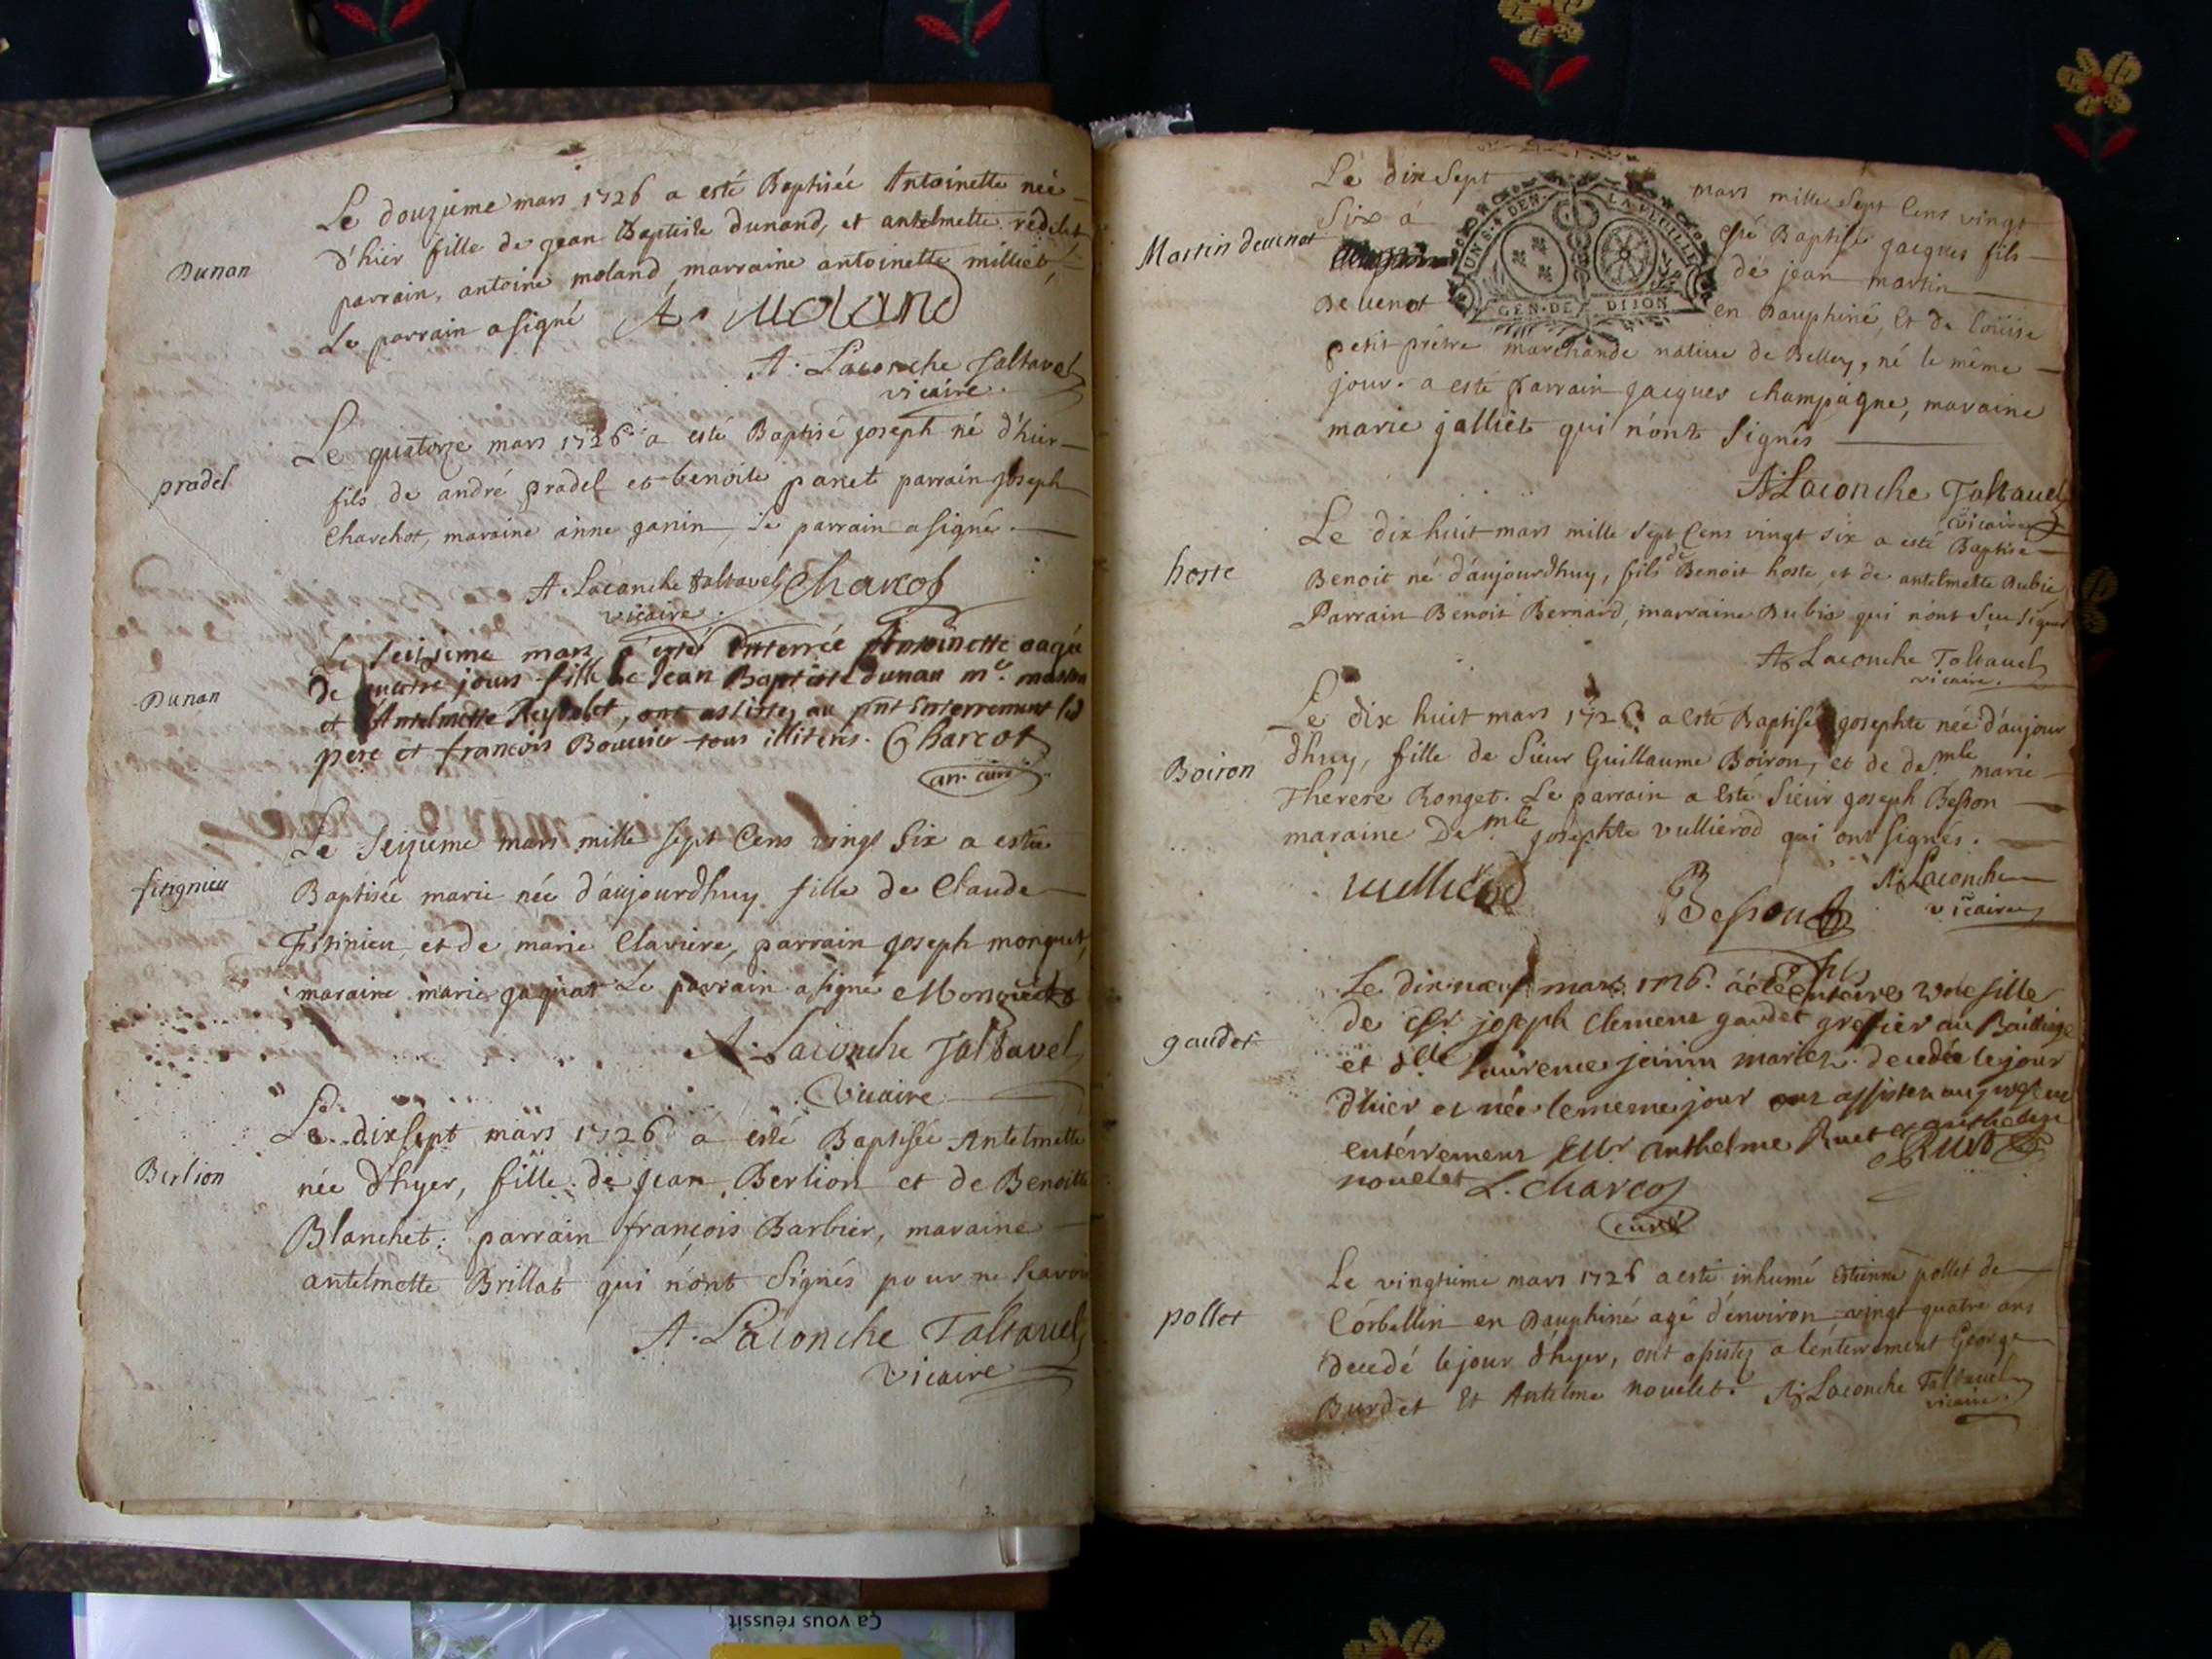 Le douzieme mars 1726 a esté Baptisée Antoinette née
d'hier fille de jean Baptiste Dunand, et antelmette redelet
Dunan
parrain, antoine moland, marraine antoinette milliet,
Le parrain a signé A. Moland
A. Laconche Taltavel
vicaire.
Le quatorze mars 1726 a esté Baptisé joseph né d'hier
pradel
fils de andré pradel et benoite panet parrain joseph
Charchot, maraine anne ganin, le parrain a signé.
A. Laconche Taltavel Charcot
vicaire.
Le seizieme mars a esté Enterrée Antoinette aagée
de jours fille de Jean Baptiste dunan me. masson
Dunan
et Antelmette Reydelet, ont assistez au pnt Enterrement le
pere et francois Bouvier tous illiteres. Charcot
arr. curé
Le Seizieme mars mille sept Cens vingt six a estée
fisignieu
Baptisée marie née d'aujourdhuy fille de Claude
Fisinieu et de marie Claviere, parrain joseph monquet,
maraine marie jaquat Le parrain a signé Monquet
A. Laconche Taltavel
Vicaire
Le dixsept mars 1726 a esté Baptisée Antelmette
Berlion
née d'hyer, fille de jean Berlion et de Benoitte
Blanchet: parrain françois Barbier, maraine
antelmette Brillat qui n'ont Signés pour ne scavoir
A. Laconche Taltavel
vicaire
Le dix Sept mars mille Sept Cens vingt
Six a esté Baptisé jacques fils
Martin devenot
de jean martin
GEN. DE. DIJON
Devenot en Dauphiné, Et de Loüise
petit prêtre marchande native de Belley, né le même
jour. a esté parrain jacques champagne, maraine
marie jalliet qui n'ont Signés
A. Laconche Taltavel
vicaire
Le dix huit mars mille sept Cens vingt six a esté Baptise
hoste
Benoit né d'aujourdhuy, fils de Benoit hoste et de antelmette Dubie
Parrain Benoit Bernard, marraine Dubie qui n'ont Sçu signer
A. Laconche Taltavel
vicaire.
Le dix huit mars 1726 a esté Baptisée josephte née d'aujour
Boiron
dhuy, fille de Sieur Guillaume Boiron, et de demle marie
Therese Ronget. Le parrain a Esté Sieur joseph Besson
maraine Demle josephte vullierod qui ont signés.
Vullierod Besson A. Laconche
vicaire
Le dixneuf mars 1726. a été entérré une fille
gaudet
de Sr joseph Clemens gaudet greffier au Bailliage
et dlle Laurence janin mariez. decedée le jour
d'hier et née le meme jour ont assistez au present
entérrement Sr anthelme Ruet et anthelme
nouelet L. Charcot Ruet
curé
Le vingtieme mars 1726 a esté inhumé Etienne pollet de
pollet
Corbellin en Dauphiné agé d'environ vingt quatre ans
decedé le jour d'hyer, ont assistez a l'enterrement George
Burdet Et Antelme nouelet. A. Laconche Taltavel
vicaire.
Ça vous réussit